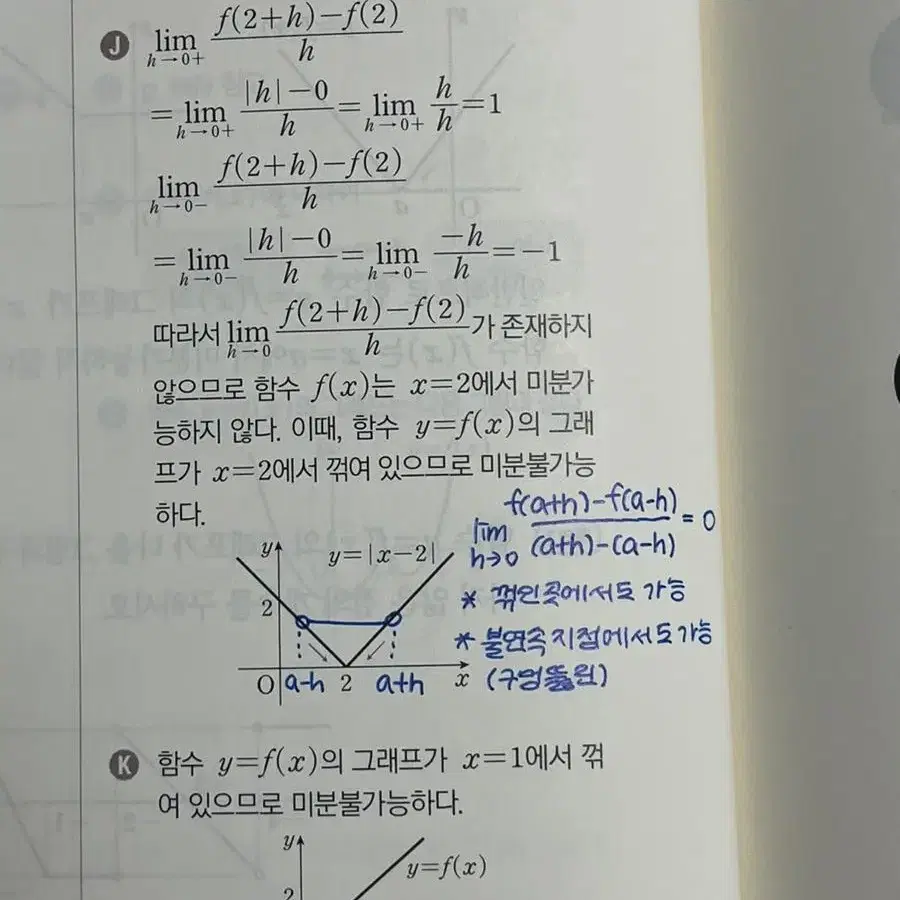 J lim h→0+ f(2+h)-f(2) / h
= lim h→0+ |h|-0 / h = lim h→0+ h / h = 1
lim h→0- f(2+h)-f(2) / h
= lim h→0- |h|-0 / h = lim h→0- -h / h = -1
따라서 lim h→0 f(2+h)-f(2) / h 가 존재하지
않으므로 함수 f(x)는 x=2에서 미분가
능하지 않다. 이때, 함수 y=f(x)의 그래
프가 x=2에서 꺾여 있으므로 미분불가능
하다.
lim h→0 f(a+h)-f(a-h) / (a+h)-(a-h) = 0
* 꺾인곳에서도 가능
* 불연속 지점에서도 가능
(구멍뚫린)
y
y=|x-2|
2
O a-h 2 a+h x
K 함수 y=f(x)의 그래프가 x=1에서 꺾
여 있으므로 미분불가능하다.
y
y=f(x)
2